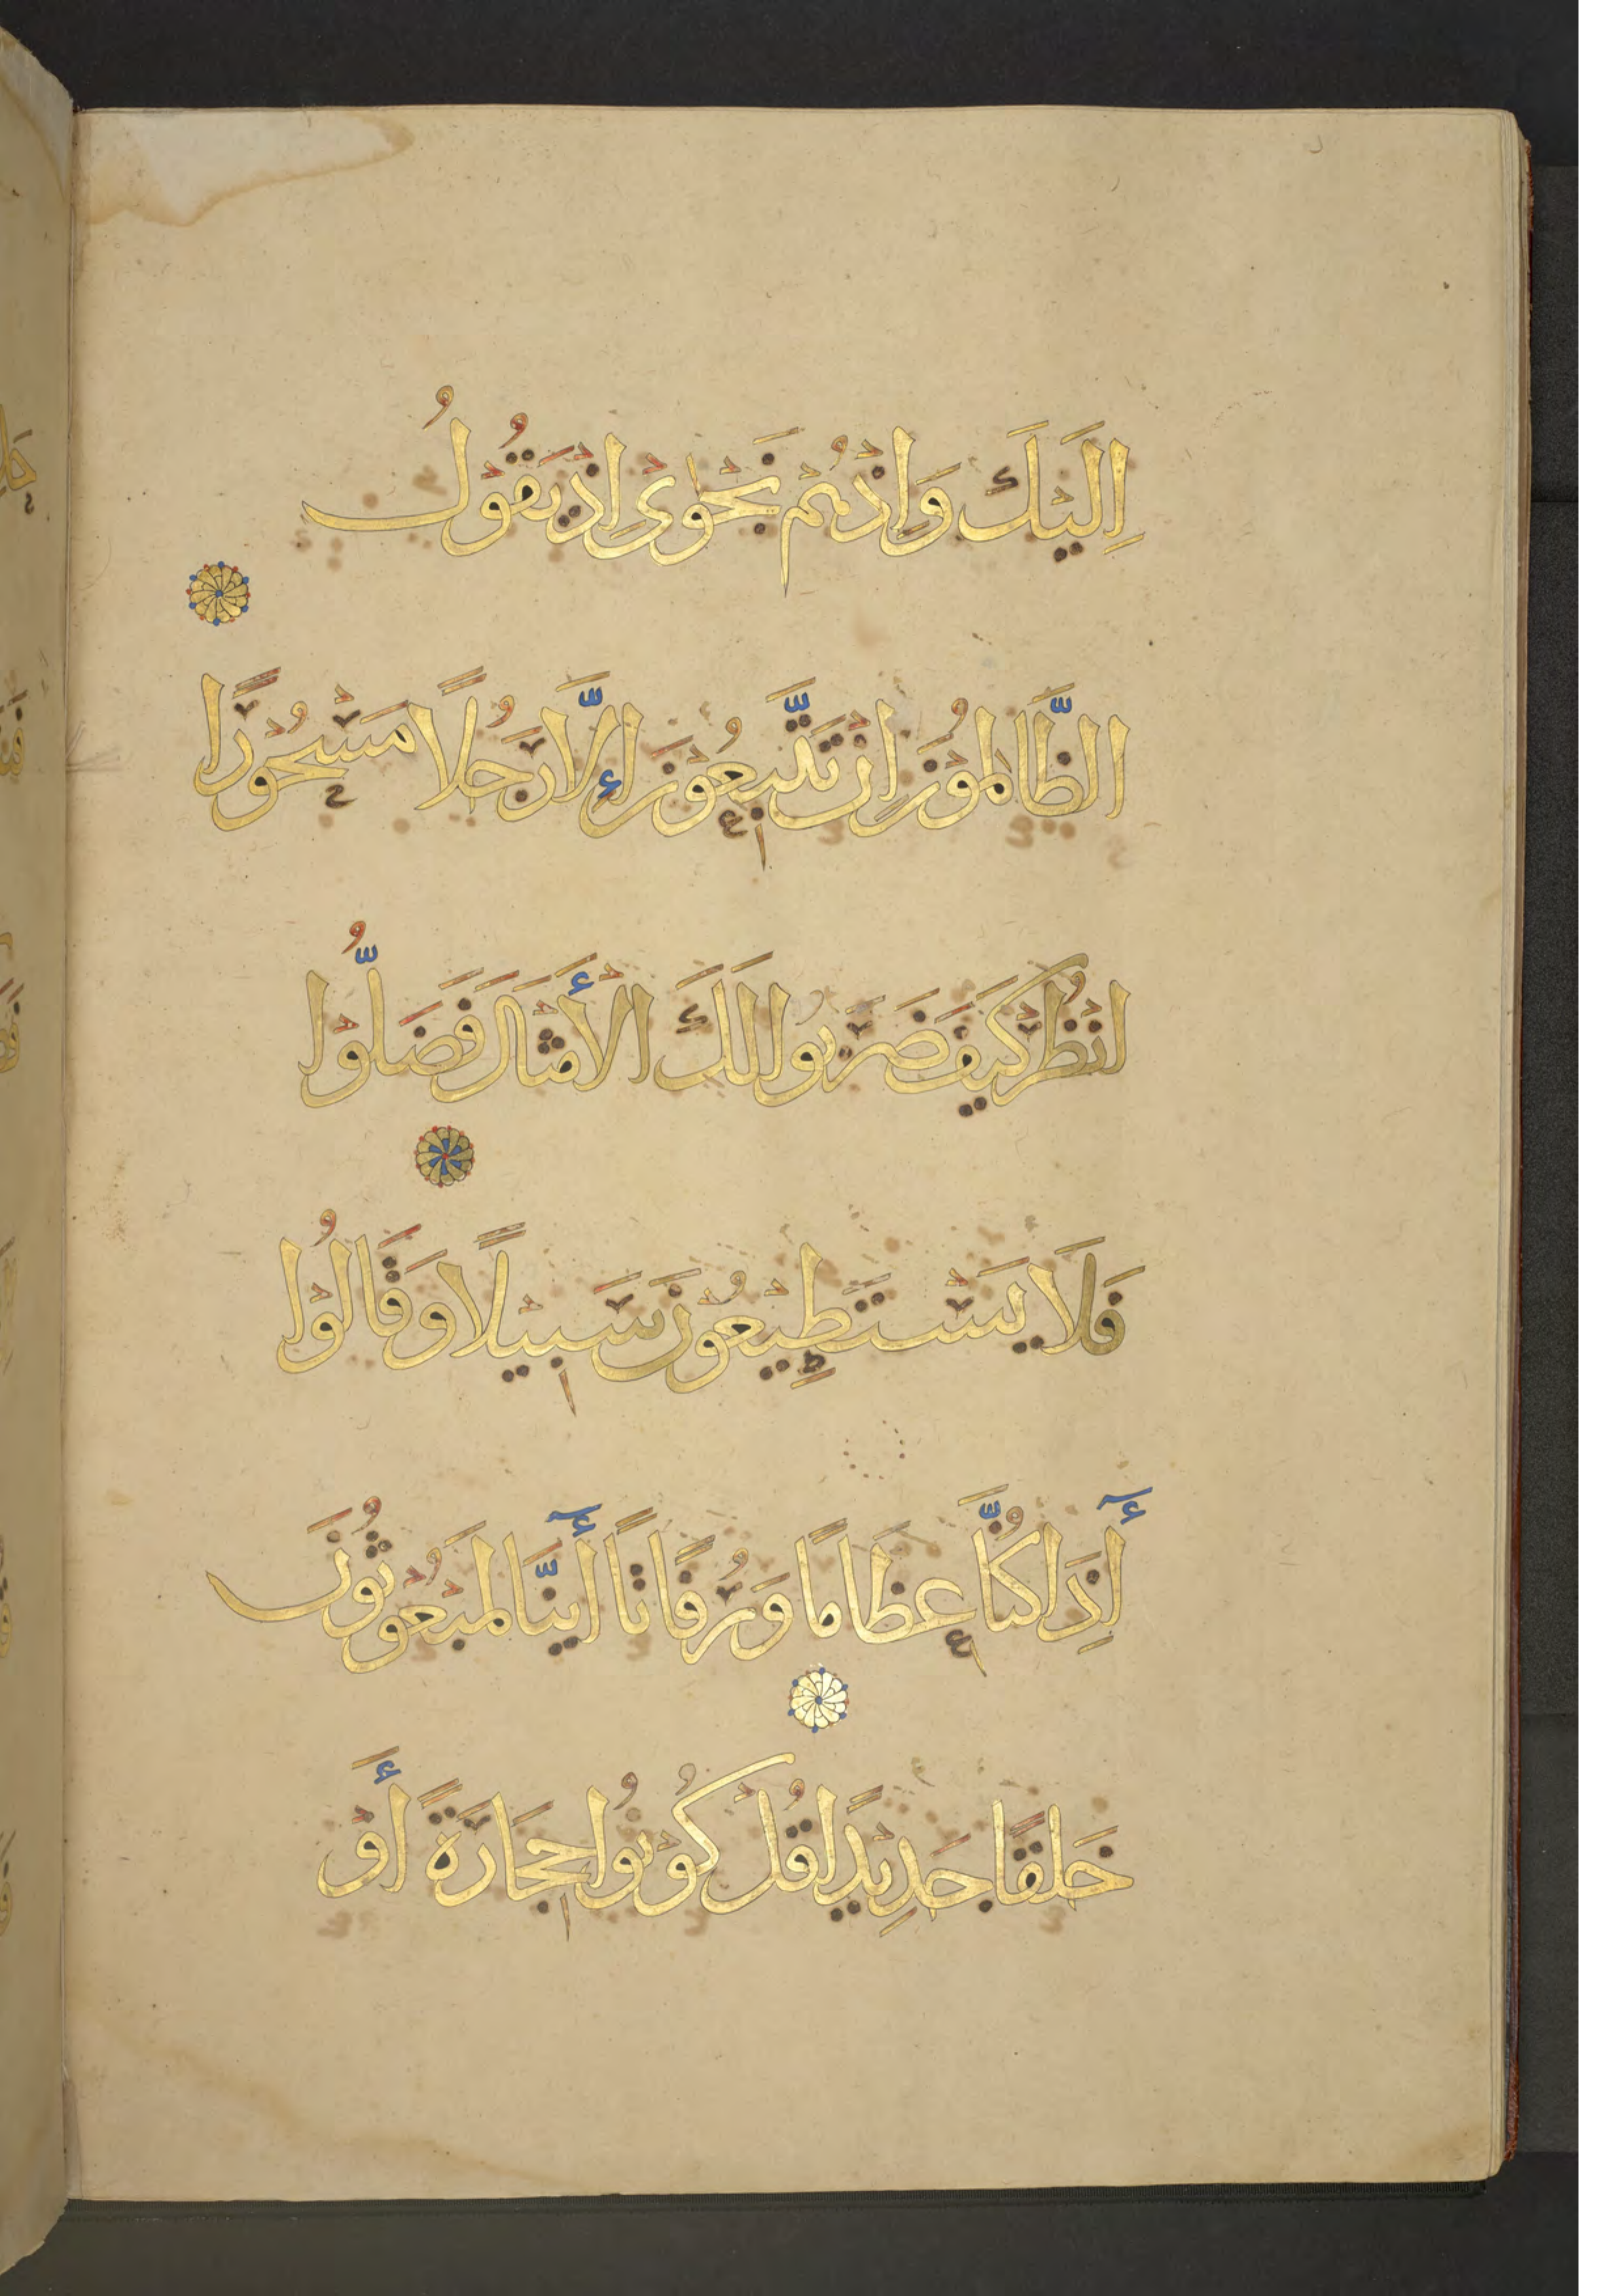 اِلَيْكَ وَاِذْهُمْ نَجْوٰىٓ اِذْ يَقُوْلُ
الظَّالِمُوْنَ اِنْ تَتَّبِعُوْنَ اِلَّا رَجُلًا مَسْحُوْرًا
انْظُرْ كَيْفَ ضَرَبُوا لَكَ الْأَمْثَالَ فَضَلُّوْا
فَلَا يَسْتَطِيْعُوْنَ سَبِيْلًا وَقَالُوْا
أَإِذَا كُنَّا عِظَامًا وَرُفَاتًا أَئِنَّا لَمَبْعُوْثُوْنَ
خَلْقًا جَدِيْدًا قُلْ كُوْنُوا حِجَارَةً أَوْ